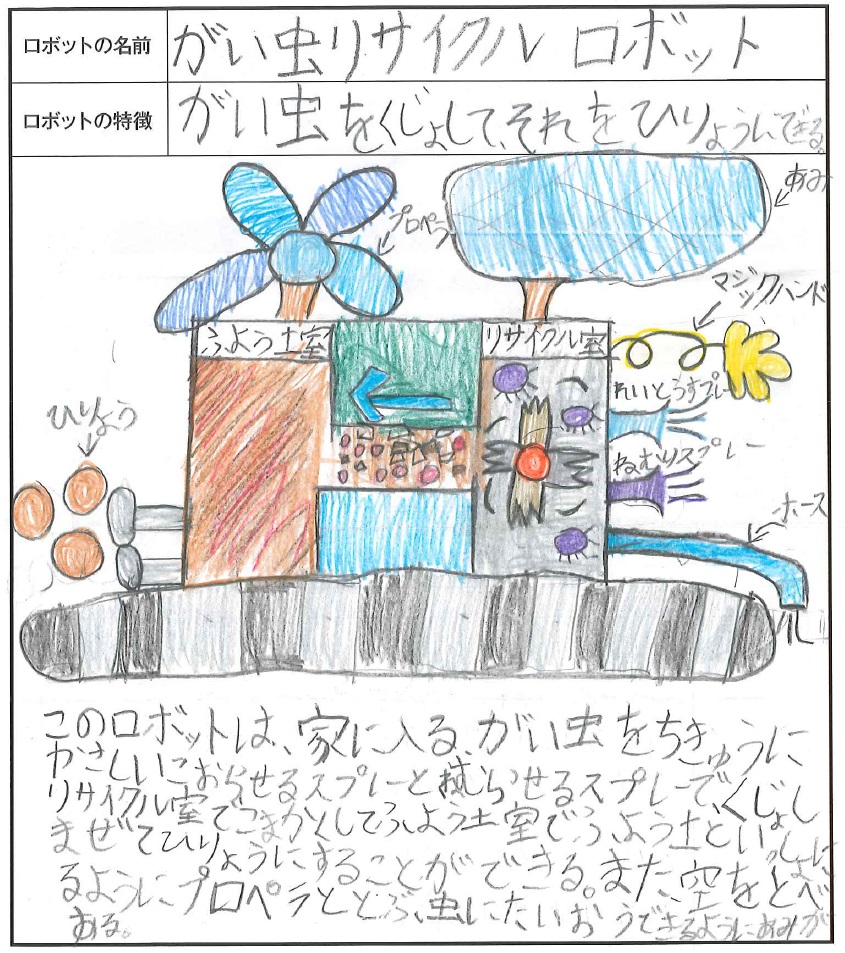 ロボットの名前
がい虫リサイクル ロボット
ロボットの特徴
がい虫をくじょして、それをひりょうにできる。
あみ
プロペラ
マジックハンド
ふよう土室
リサイクル室
れいとうスプレー
ひりょう
ねむりスプレー
ホース
このロボットは、家に入る、がい虫をちきゅうに
やさしいこおらせるスプレーとねむらせるスプレーで、くじょし
リサイクル室でこまかくしてふよう土室でふよう土といっしょに
まぜてひりょうにすることができる。また、空をとべ
るようにプロペラととぶ虫にたいおうできるようにあみが
ある。